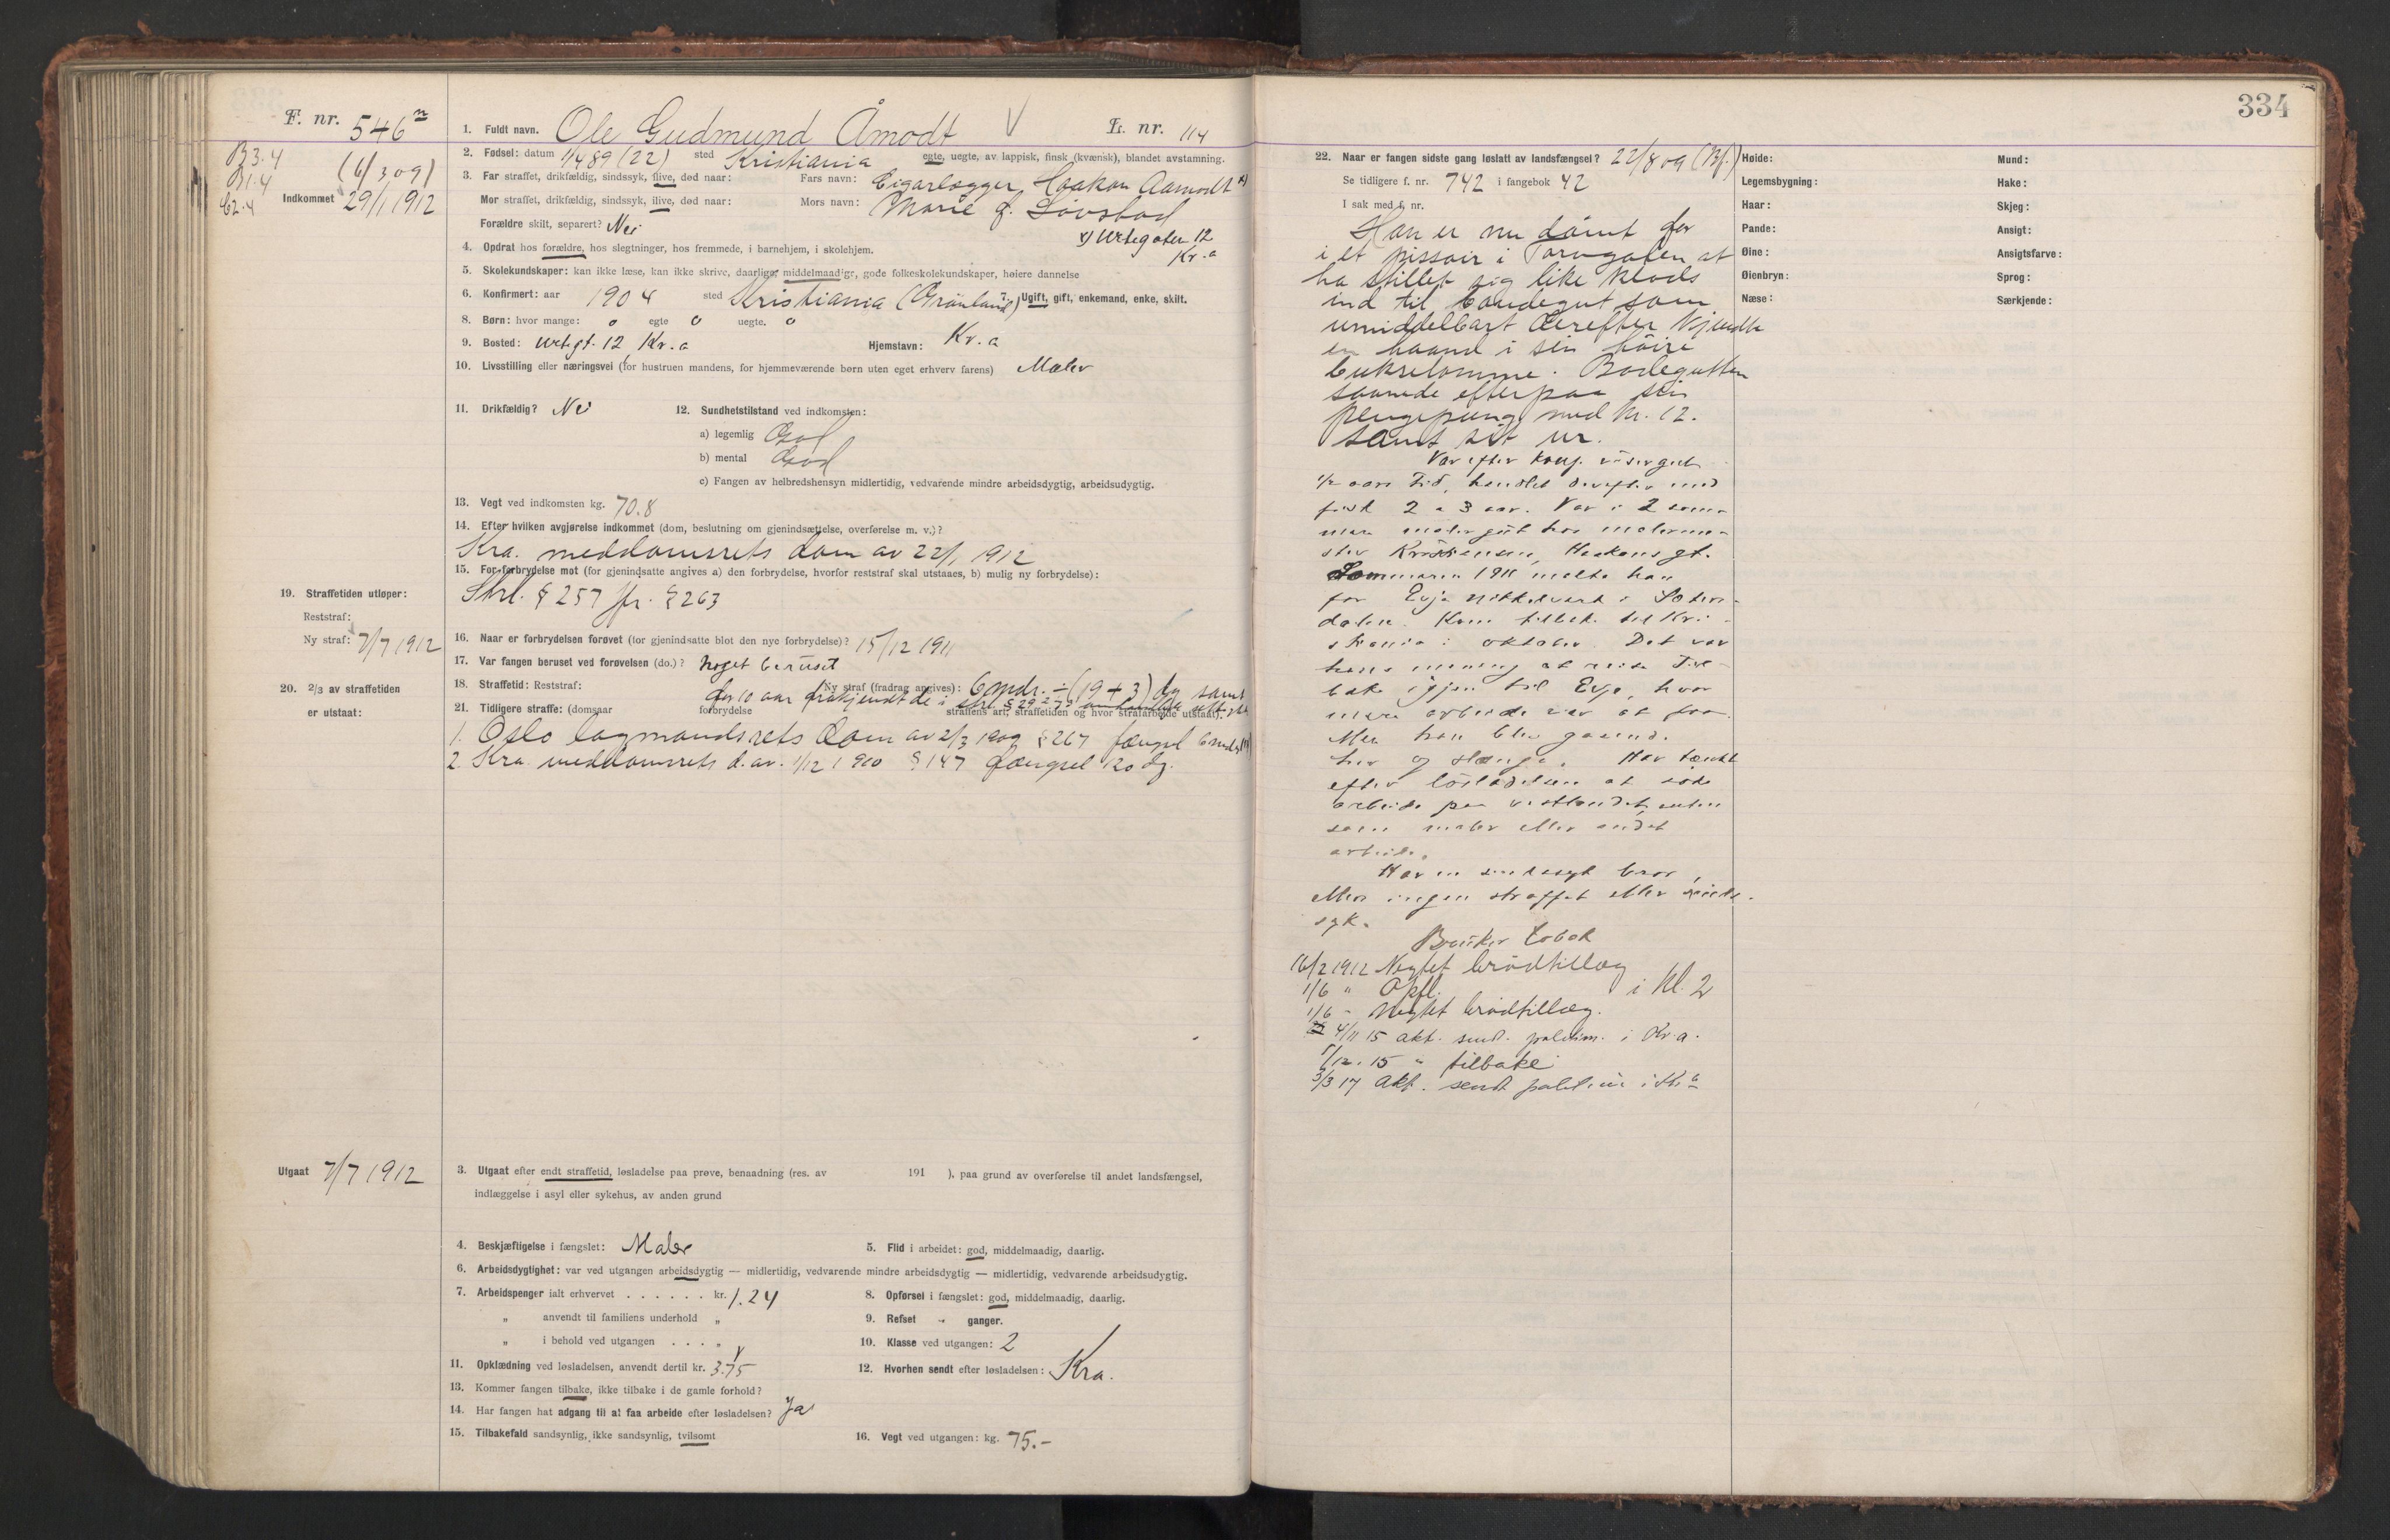 334
F. nr. 546
B3.4
B1.4
62.4
(6/3 09)
Indkommet 29/1 1912
1. Fuldt navn. Ole Gudmund Åmodt V L. nr. 114
2. Fødsel: datum 1/4 89 (22) sted Kristiania egte, uegte, av lappisk, finsk (kvænsk), blandet avstamning.
3. Far straffet, drikfældig, sindssyk, ilive, død naar: Fars navn: Cigarlægger Haakon Aamodt x)
Mor straffet, drikfældig, sindssyk, ilive, død naar: Mors navn: Marie f. Lövstad
Forældre skilt, separert? Nei x) Urtegaten 12
Kr.a
4. Opdrat hos forældre, hos slegtninger, hos fremmede, i barnehjem, i skolehjem.
5. Skolekundskaper: kan ikke læse, kan ikke skrive, daarlige, middelmaadige, gode folkeskolekundskaper, høiere dannelse
6. Konfirmert: aar 1904 sted Kristiania (Grönland) 7. Ugift, gift, enkemand, enke, skilt.
8. Børn: hvor mange: 0 egte 0 uegte. 0
9. Bosted: Urtegt. 12 Kr.a Hjemstavn: Kr.a
10. Livsstilling eller næringsvei (for hustruen mandens, for hjemmeværende børn uten eget erhverv farens) Maler
11. Drikfældig? Nei 12. Sundhetstilstand ved indkomsten:
a) legemlig God
b) mental God
c) Fangen av helbredshensyn midlertidig, vedvarende mindre arbeidsdygtig, arbeidsudygtig.
13. Vegt ved indkomsten kg. 70.8
14. Efter hvilken avgjørelse indkommet (dom, beslutning om gjenindsættelse, overførelse m. v.)?
Kra. meddomsrets dom av 22/1 1912
15. For forbrydelse mot (for gjenindsatte angives a) den forbrydelse, hvorfor reststraf skal utstaaes, b) mulig ny forbrydelse):
Strl. § 257 jfr. § 263
19. Straffetiden utløper:
Reststraf:
Ny straf: 7/7 1912
16. Naar er forbrydelsen forøvet (for gjenindsatte blot den nye forbrydelse)? 15/12 1911
17. Var fangen beruset ved forøvelsen (do.)? Noget beruset
18. Straffetid: Reststraf: Ny straf (fradrag angives): 6 mdr. ÷ (19 + 3) dg samt
for 10 aar frakjendt de i strl. § 29
20. 2/3 av straffetiden
er utstaat:
21. Tidligere straffe: (domsaar forbrydelse straffens art, straffetiden og hvor strafarbeide utstaat).
1. Oslo lagmandsrets dom av 2/3 1909 § 267 fængsel 6 mdr
2. Kra. meddomsrets d. av. 1/12 1910 § 147 fængsel 120 dg.
Utgaat 7/7 1912
3. Utgaat efter endt straffetid, løsladelse paa prøve, benaadning (res. av 191 ), paa grund av overførelse til andet landsfængsel,
indlæggelse i asyl eller sykehus, av anden grund
4. Beskjæftigelse i fængslet: Maler 5. Flid i arbeidet: god, middelmaadig, daarlig.
6. Arbeidsdygtighet: var ved utgangen arbeidsdygtig — midlertidig, vedvarende mindre arbeidsdygtig — midlertidig, vedvarende arbeidsudygtig.
7. Arbeidspenger ialt erhvervet . . . . . . kr. 1.24 8. Opførsel i fængslet: god, middelmaadig, daarlig.
„ anvendt til familiens underhold „ 9. Refset - ganger.
„ i behold ved utgangen . . . „ 10. Klasse ved utgangen: 2
11. Opklædning ved løsladelsen, anvendt dertil kr. 3.75 12. Hvorhen sendt efter løsladelsen: Kra.
13. Kommer fangen tilbake, ikke tilbake i de gamle forhold?
14. Har fangen hat adgang til at faa arbeide efter løsladelsen? Ja
15. Tilbakefald sandsynlig, ikke sandsynlig, tvilsomt 16. Vegt ved utgangen: kg. 75.-
22. Naar er fangen sidste gang løslatt av landsfængsel? 22/8 09 (Bf.)
Se tidligere f. nr. 742 i fangebok 42
I sak med f. nr.
Han er nu dömt for
i et pissoir i Torvgaten at
ha stillet sig like klods
ind til bondegut som
umiddelbart derefter kjendte
en haand i sin höire
bukselomme. Bondegutten
savnede efterpaa sin
pengepung med kr. 12.
samt sit ur.
Var efter konf. visergut
1/2 aars tid, handlet derefter med
fisk 2 a 3 aar. Var i 2 som-
mere malergut hos malerme-
ster Kristensen, Haakons gt.
Sommeren 1911 malte han
for Evje nikkelverk i Seters-
dalen. Kom tilbake til Kri-
stiania i oktober. Det var
hans mening at reise til-
bake igjen til Evje, hvor
mere arbeide var at faa.
Men han blev gaaende
her og slænge. Har tænkt
efter lösladelsen at söke
arbeide paa vestlandet enten
som maler eller andet
arbeide.
Har en sindssyk bror,
ellers ingen straffet eller sinds-
syk.
Bruker tobak
16/2 1912 Negtet brödtillæg
1/6 " Opfl. i kl. 2
1/6 - Negtet brödtillæg.
4/11 15 akt. send. politim. i Kr.a.
1/12. 15 " tilbake
3/3 17 akt. sendt politim i Kr.a
Høide:
Legemsbygning:
Haar:
Pande:
Øine:
Øienbryn:
Næse:
Mund:
Hake:
Skjeg:
Ansigt:
Ansigtsfarve:
Sprog:
Særkjende: